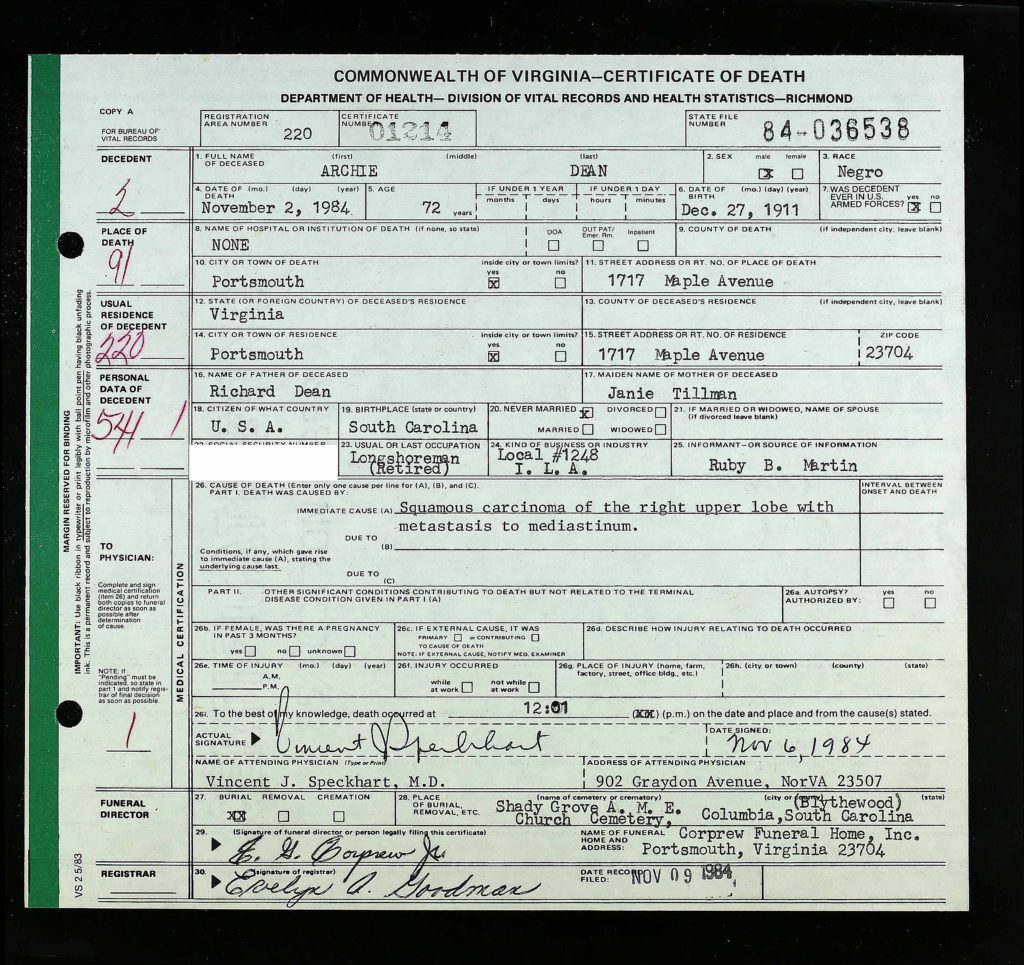 COMMONWEALTH OF VIRGINIA—CERTIFICATE OF DEATH
DEPARTMENT OF HEALTH— DIVISION OF VITAL RECORDS AND HEALTH STATISTICS—RICHMOND
COPY A
FOR BUREAU OF VITAL RECORDS
REGISTRATION AREA NUMBER 220
CERTIFICATE NUMBER 01214
STATE FILE NUMBER 84-036538
DECEDENT
2
1. FULL NAME OF DECEASED (first) (middle) (last)
ARCHIE DEAN
2. SEX male female
X
3. RACE
Negro
4. DATE OF DEATH (mo.) (day) (year)
November 2, 1984
5. AGE
72 years
IF UNDER 1 YEAR months days
IF UNDER 1 DAY hours minutes
6. DATE OF BIRTH (mo.) (day) (year)
Dec. 27, 1911
7. WAS DECEDENT EVER IN U.S. ARMED FORCES? yes no
X
PLACE OF DEATH
91
8. NAME OF HOSPITAL OR INSTITUTION OF DEATH (if none, so state)
NONE
DOA OUT PAT/ Emer. Rm. Inpatient
9. COUNTY OF DEATH (if independent city, leave blank)
10. CITY OR TOWN OF DEATH inside city or town limits? yes no
Portsmouth X
11. STREET ADDRESS OR RT. NO. OF PLACE OF DEATH
1717 Maple Avenue
USUAL RESIDENCE OF DECEDENT
220
12. STATE (OR FOREIGN COUNTRY) OF DECEASED'S RESIDENCE
Virginia
13. COUNTY OF DECEASED'S RESIDENCE (if independent city, leave blank)
14. CITY OR TOWN OF RESIDENCE inside city or town limits? yes no
Portsmouth X
15. STREET ADDRESS OR RT. NO. OF RESIDENCE ZIP CODE
1717 Maple Avenue 23704
PERSONAL DATA OF DECEDENT
541 1
16. NAME OF FATHER OF DECEASED
Richard Dean
17. MAIDEN NAME OF MOTHER OF DECEASED
Janie Tillman
18. CITIZEN OF WHAT COUNTRY
U. S. A.
19. BIRTHPLACE (state or country)
South Carolina
20. NEVER MARRIED X DIVORCED
MARRIED WIDOWED
21. IF MARRIED OR WIDOWED, NAME OF SPOUSE (if divorced leave blank)
22. SOCIAL SECURITY NUMBER
23. USUAL OR LAST OCCUPATION
Longshoreman
(Retired)
24. KIND OF BUSINESS OR INDUSTRY
Local #1248
I. L. A.
25. INFORMANT—OR SOURCE OF INFORMATION
Ruby B. Martin
MARGIN RESERVED FOR BINDING
IMPORTANT: Use black ribbon in typewriter or print legibly with ball point pen having black unfading
ink. This is a permanent record and subject to reproduction by microfilm and other photographic process.
TO PHYSICIAN:
Complete and sign
medical certification
(item 26) and return
both copies to funeral
director as soon as
possible after
determination
of cause.
NOTE: If
"Pending" must be
indicated, so state in
part 1 and notify regis-
trar of final decision
as soon as possible.
1
MEDICAL CERTIFICATION
26. CAUSE OF DEATH (Enter only one cause per line for (A), (B), and (C).
PART I. DEATH WAS CAUSED BY:
INTERVAL BETWEEN ONSET AND DEATH
IMMEDIATE CAUSE (A) Squamous carcinoma of the right upper lobe with
metastasis to mediastinum.
DUE TO
(B)
Conditions, if any, which gave rise
to immediate cause (A), stating the
underlying cause last.
DUE TO
(C)
PART II. OTHER SIGNIFICANT CONDITIONS CONTRIBUTING TO DEATH BUT NOT RELATED TO THE TERMINAL
DISEASE CONDITION GIVEN IN PART I (A)
26a. AUTOPSY? AUTHORIZED BY: yes no
26b. IF FEMALE, WAS THERE A PREGNANCY
IN PAST 3 MONTHS?
yes no unknown
26c. IF EXTERNAL CAUSE, IT WAS
PRIMARY or CONTRIBUTING
TO CAUSE OF DEATH
NOTE: IF EXTERNAL CAUSE, NOTIFY MED. EXAMINER
26d. DESCRIBE HOW INJURY RELATING TO DEATH OCCURRED
26e. TIME OF INJURY (mo.) (day) (year)
A.M.
P.M.
26f. INJURY OCCURRED
while at work not while at work
26g. PLACE OF INJURY (home, farm,
factory, street, office bldg., etc.)
26h. (city or town) (county) (state)
26i. To the best of my knowledge, death occurred at 12:01 (XX) (p.m.) on the date and place and from the cause(s) stated.
ACTUAL SIGNATURE Vincent J Speckhart
DATE SIGNED:
Nov 6, 1984
NAME OF ATTENDING PHYSICIAN (Type or Print)
Vincent J. Speckhart, M.D.
ADDRESS OF ATTENDING PHYSICIAN
902 Graydon Avenue, NorVA 23507
FUNERAL DIRECTOR
27. BURIAL REMOVAL CREMATION
XX
28. PLACE OF BURIAL, REMOVAL, ETC.
(name of cemetery or crematory) (city or county) (state)
Shady Grove A. M. E. (Blythewood)
Church Cemetery, Columbia, South Carolina
29. (Signature of funeral director or person legally filing this certificate)
E. G. Corprew Jr
NAME OF FUNERAL HOME AND ADDRESS:
Corprew Funeral Home, Inc.
Portsmouth, Virginia 23704
REGISTRAR
30. (Signature of registrar)
Evelyn A. Goodman
DATE RECORD FILED: NOV 09 1984
VS 2 5/83